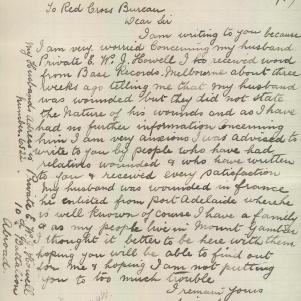 To Red Cross Bureau
Dear Sir
I am writing to you because
I am very worried concerning my husband
Private E. W. J. Howell I have received word
from Base Records Melbourne about three
weeks ago telling me that my husband
was wounded but they did not state
the nature of his wounds and as I have
had no further information concerning
him I am very anxious I was advised to
write to you by people who have had
relatives wounded & who have written
to you & received every satisfaction
My husband was wounded in france
he enlisted from Port Adelaide where he
is well known of course I have a family
& as my people live in Mount Gambier
I thought it better to be here with them
hoping you will be able to find out
for me & hoping I am not putting
you to too much trouble
I remain Yours
My Husband address Private E. W. J. Howell
number 10th Battalion
Abroad